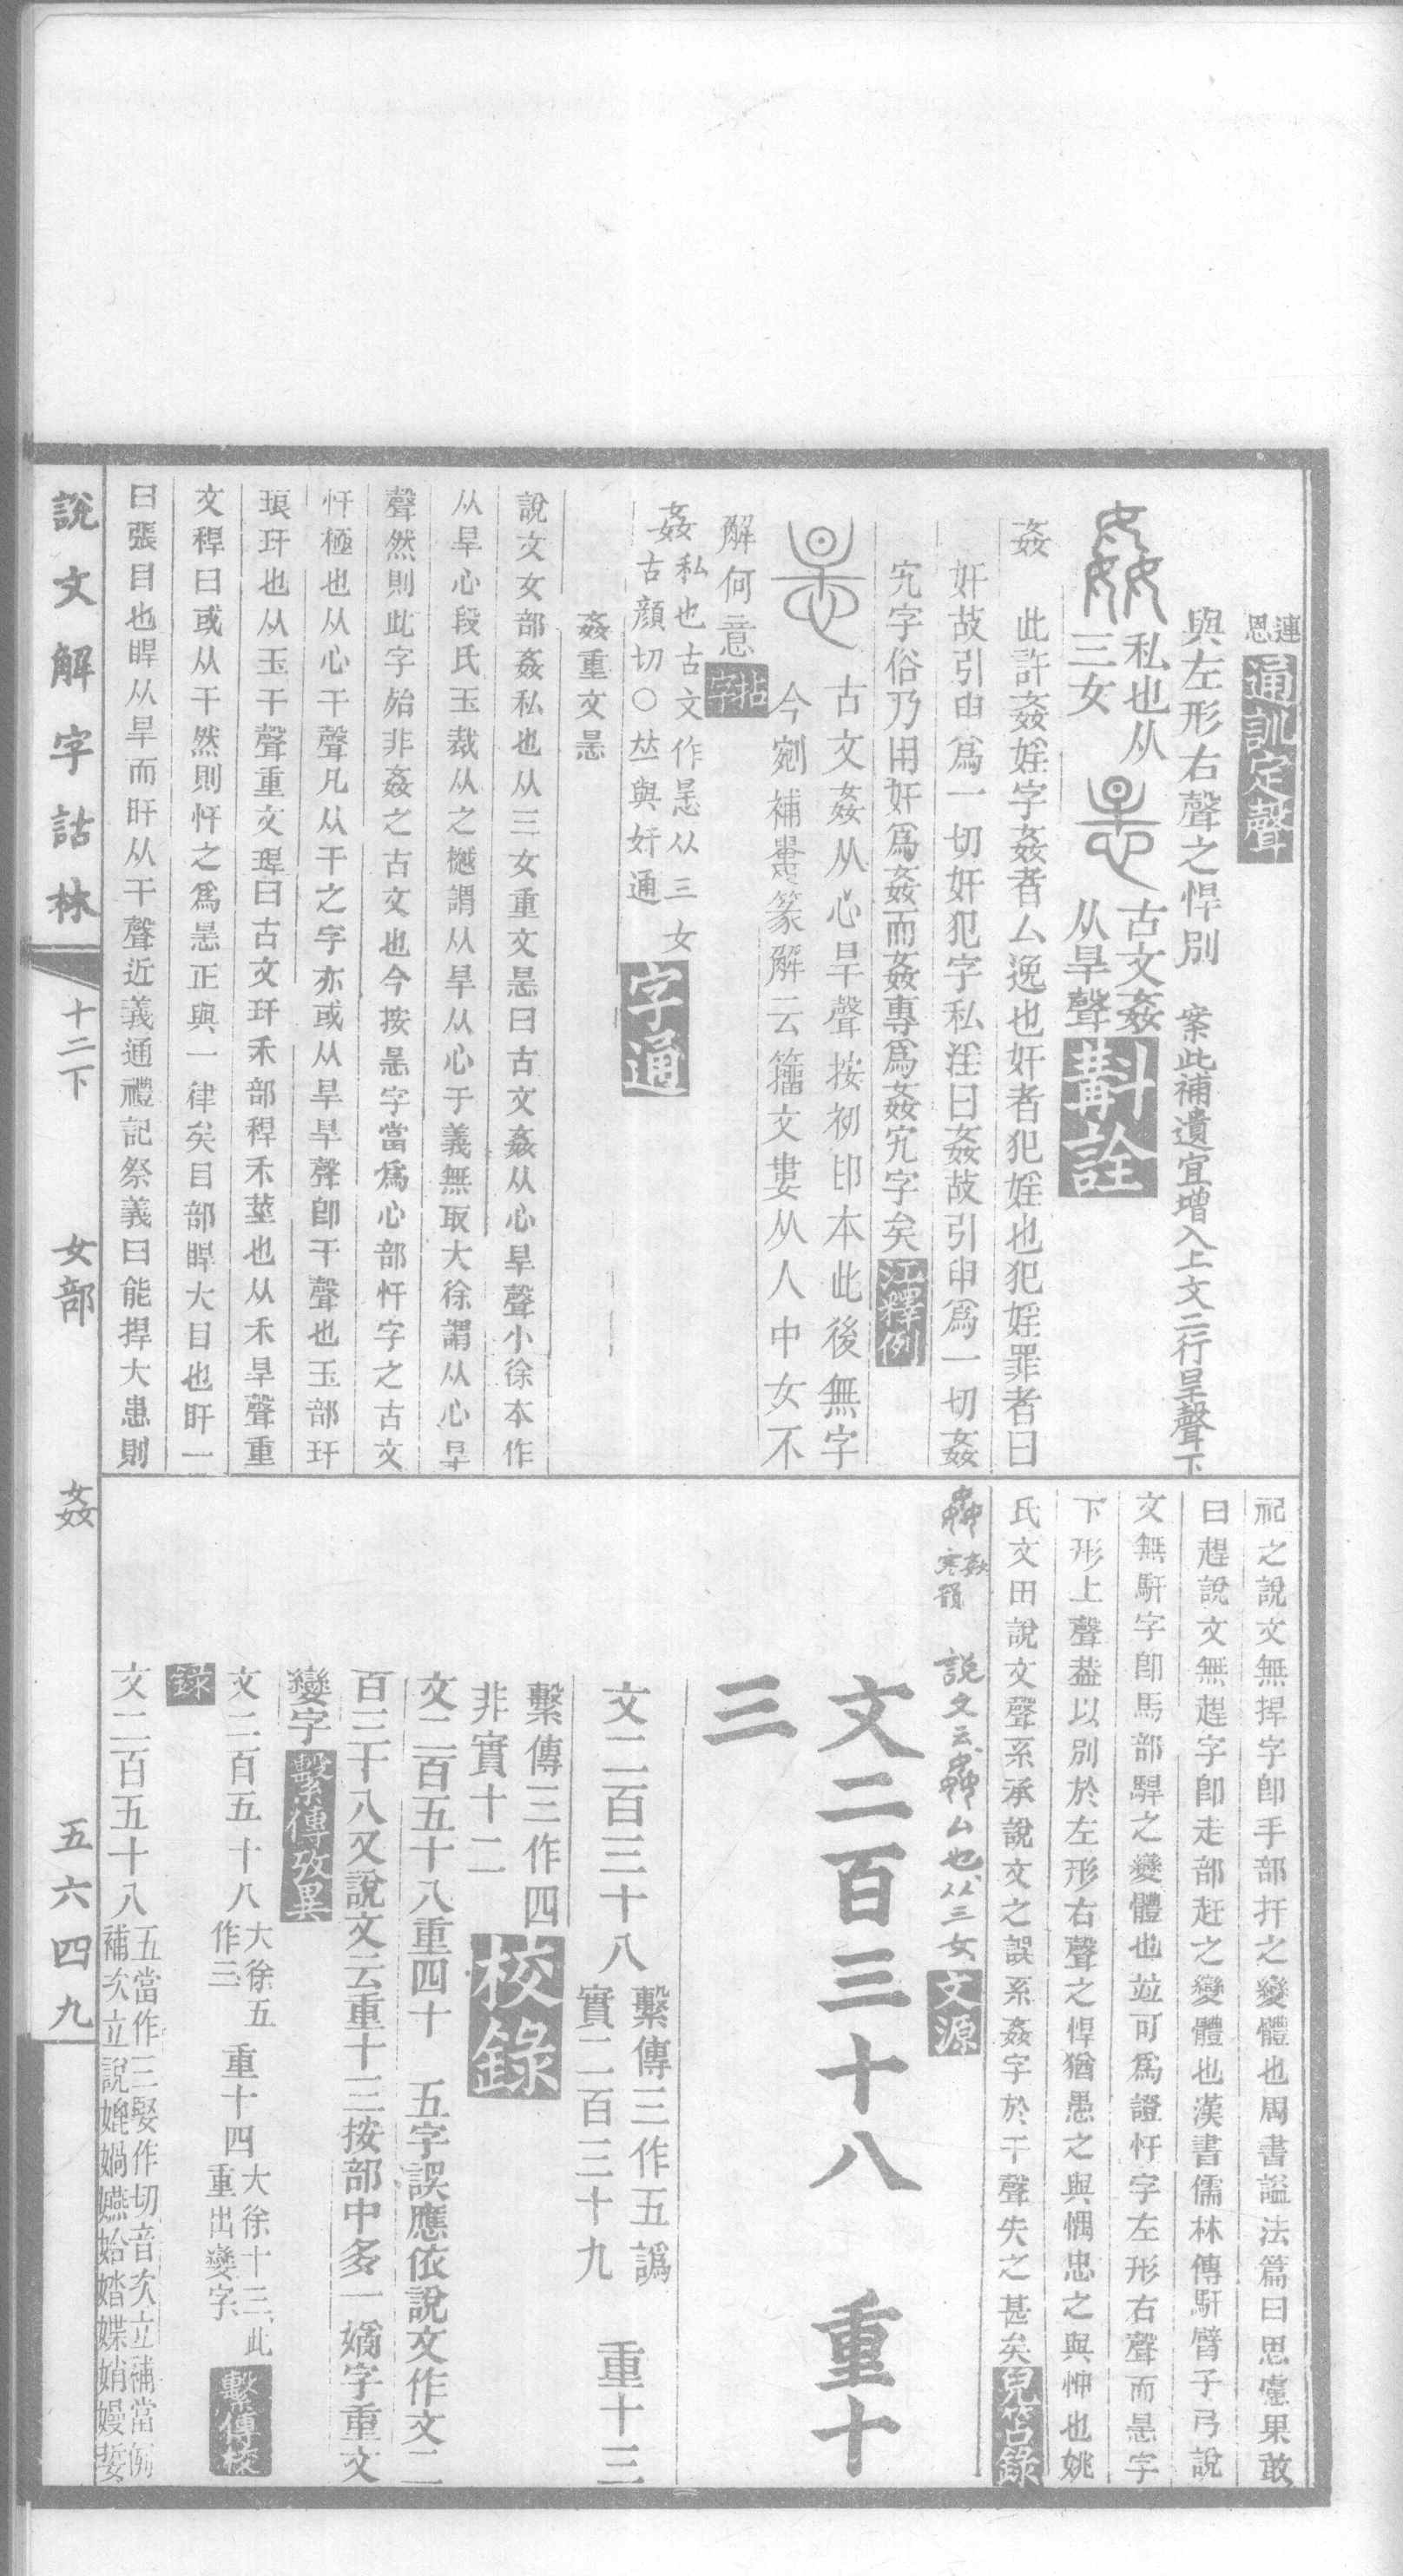 連恩通訓定聲
與左形右聲之悍別　案此補遺宜增入上文二行旱聲下
姦私也从三女𢙼古文姦从旱聲斠詮
姦　此許姦婬字姦者厶逸也奸者犯婬也犯婬罪者曰
奸故引申爲一切奸犯字私淫曰姦故引申爲一切姦
宄字俗乃用奸爲姦而姦專爲姦宄字矣江釋例
𢙼古文姦从心旱聲按初印本此後無字
今剜補婁篆解云籒文婁从人中女不
解何意拈字
姦私也古文作𢙼从三女古顔切○𠀤與奸通字通
姦重文𢙼
說文女部姦私也从三女重文𢙼曰古文姦从心旱聲小徐本作
从旱心段氏玉裁从之樾謂从旱从心于義無取大徐謂从心旱
聲然則此字殆非姦之古文也今按𢙼字當爲心部忓字之古文
忓極也从心干聲凡从干之字亦或从旱旱聲卽干聲也玉部玕
琅玕也从玉干聲重文琝曰古文玕禾部稈禾莖也从禾旱聲重
文稈曰或从干然則忓之爲𢙼正與一律矣目部睅大目也盰一
曰張目也睅从旱而盰从干聲近義通禮記祭義曰能捍大患則
祀之說文無捍字卽手部扞之變體也周書諡法篇曰思慮果敢
曰趕說文無趕字卽走部赶之變體也漢書儒林傳馯臂子弓說
文無馯字卽馬部駻之變體也竝可爲證忓字左形右聲而𢙼字
下形上聲葢以別於左形右聲之悍猶愚之與惆忠之與忡也姚
氏文田說文聲系承說文之誤系姦字於干聲失之甚矣兒笘錄
姦姦寒韻　說文云姦厶也从三女文源
文二百三十八　重十
三
文二百三十八繫傳三作五譌實二百三十九　重十三
繫傳三作四非實十二校錄
文二百五十八重四十　五字誤應依說文作文二
百三十八又說文云重十三按部中多一嫡字重文
孌字繫傳攷異
文二百五十八大徐五作三　重十四大徐十三此重出孌字繫傳校
錄
文二百五十八
說文解字詁林　十二下　女部　姦　五六四九